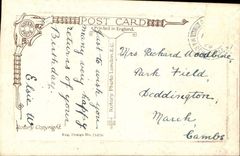 POST CARD
Printed in England.
Just to wish you
many very happy
returns of your
Birthday.
Elsie W
Mrs Richard Woodbine,
Park Field,
Doddington,
March
Cambs
Copyright